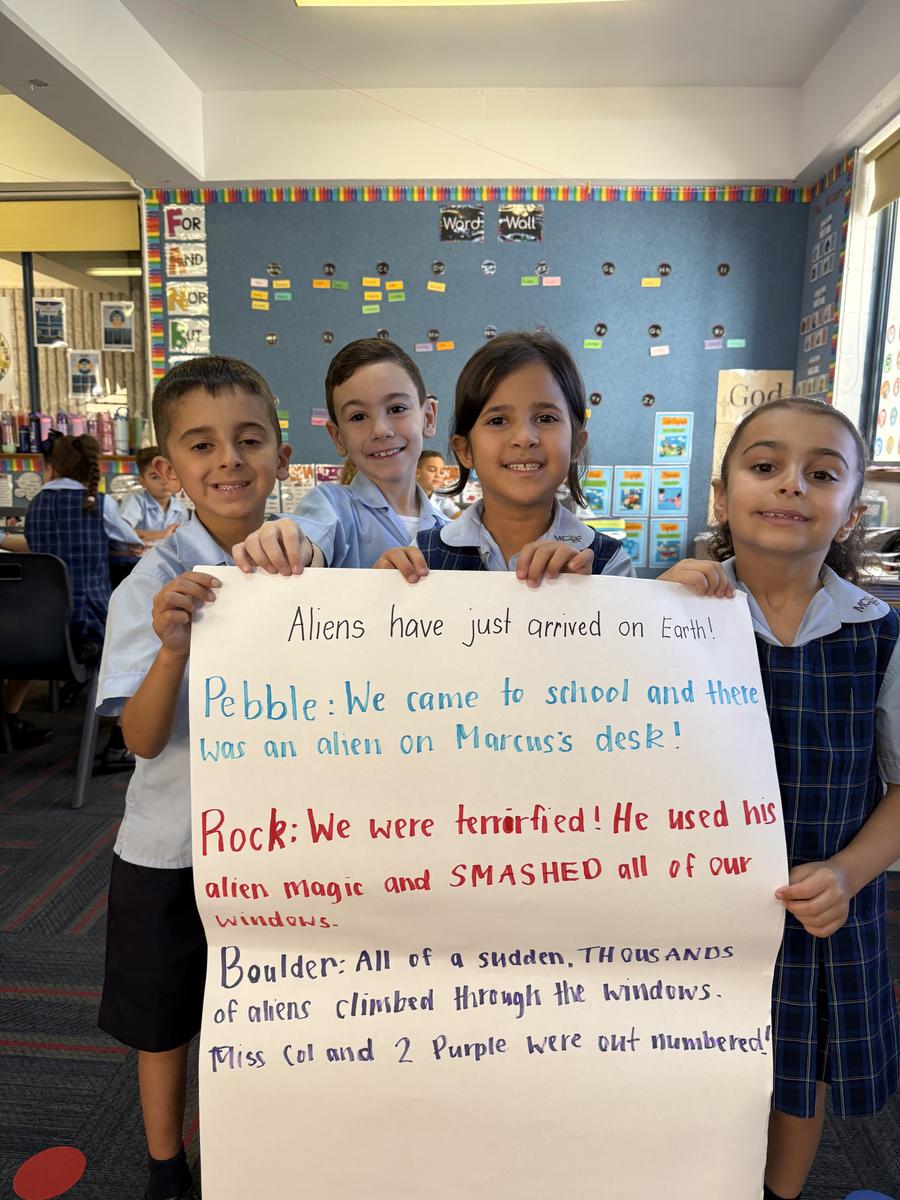 Word Wall
FOR
AND
NOR
BUT
God
Aliens have just arrived on Earth!
Pebble: We came to school and there
was an alien on Marcus's desk!
Rock: We were terrorfied! He used his
alien magic and SMASHED all of our
windows.
Boulder: All of a sudden, THOUSANDS
of aliens climbed through the windows.
Miss Col and 2 Purple were out numbered!